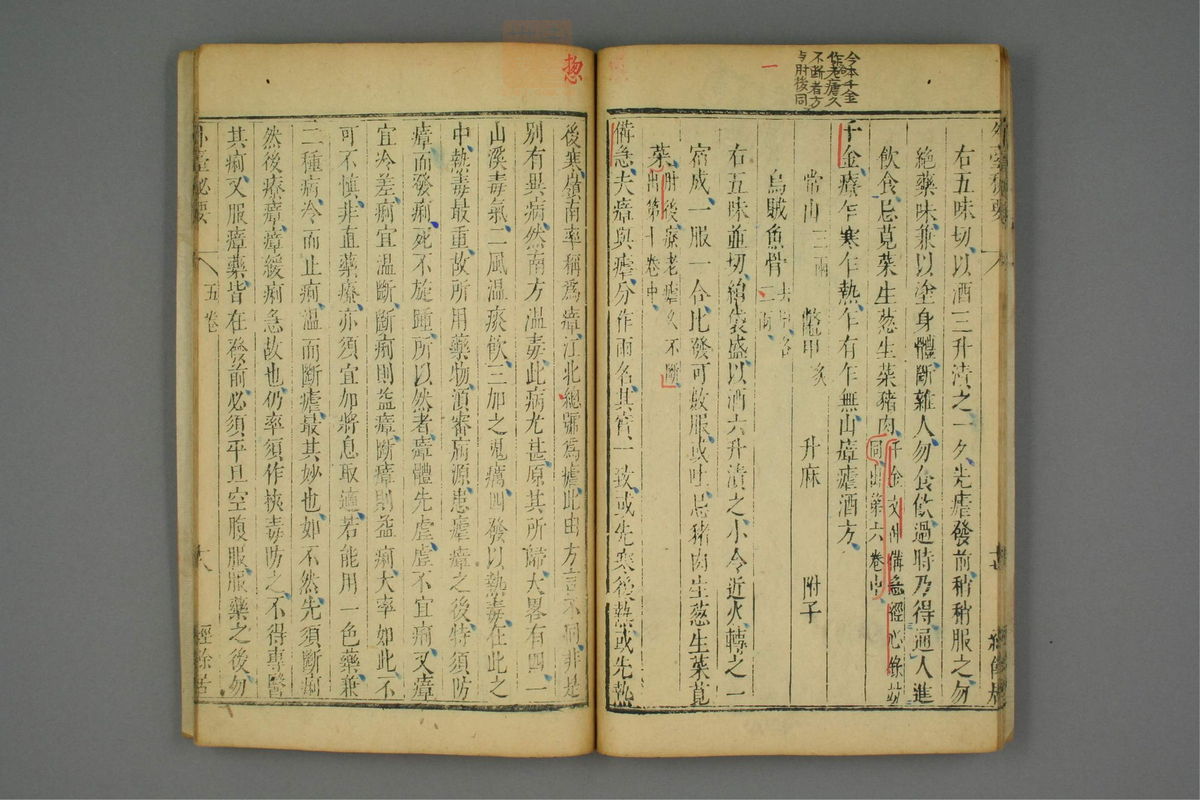 今本千金
作治老瘧久
不斷者方
与肘後同
一
外臺秘要
右五味切以酒三升漬之一夕先瘧發前稍稍服之勿
絶藥味兼以塗身體斷雜人勿食飲過時乃得通人進
飲食忌莧菜生葱生菜豬肉千金文仲備急經心錄竝
同出第六卷中
千金療乍寒乍熱乍有乍無山瘴瘧酒方
常山三兩 鼈甲炙 升麻 附子
烏賊魚骨去甲各
二兩
右五味並切綿袋盛以酒六升漬之小令近火轉之一
宿成一服一合比發可數服或吐忌豬肉生葱生菜莧
菜肘後療老瘧久不斷
出第十卷中
備急夫瘴與瘧分作兩名其實一致或先寒後熱或先熱
惣
後寒嶺南率稱為瘴江北總號為瘧此由方言不同非是
別有異病然南方溫毒此病尤甚原其所歸大畧有四一
山溪毒氣二風溫痰飲三加之鬼癘四發以熱毒在此之
中熱毒最重故所用藥物須審病源患瘧瘴之後特須防
瘴而發痢死不旋踵所以然者瘴體先虛虛不宜痢又瘴
宜冷差痢宜溫斷斷痢則益瘴斷瘴則益痢大率如此不
可不慎非直藥療亦須宜加將息取適若能用一色藥兼
二種病冷而止痢溫而斷瘧最其妙也如不然先須斷痢
然後療瘴瘴緩痢急故也仍率須作挾毒防之不得專醫
其痢又服瘴藥皆在發前必須平旦空腹服服藥之後勿
外臺秘要 五卷 十八 經餘居